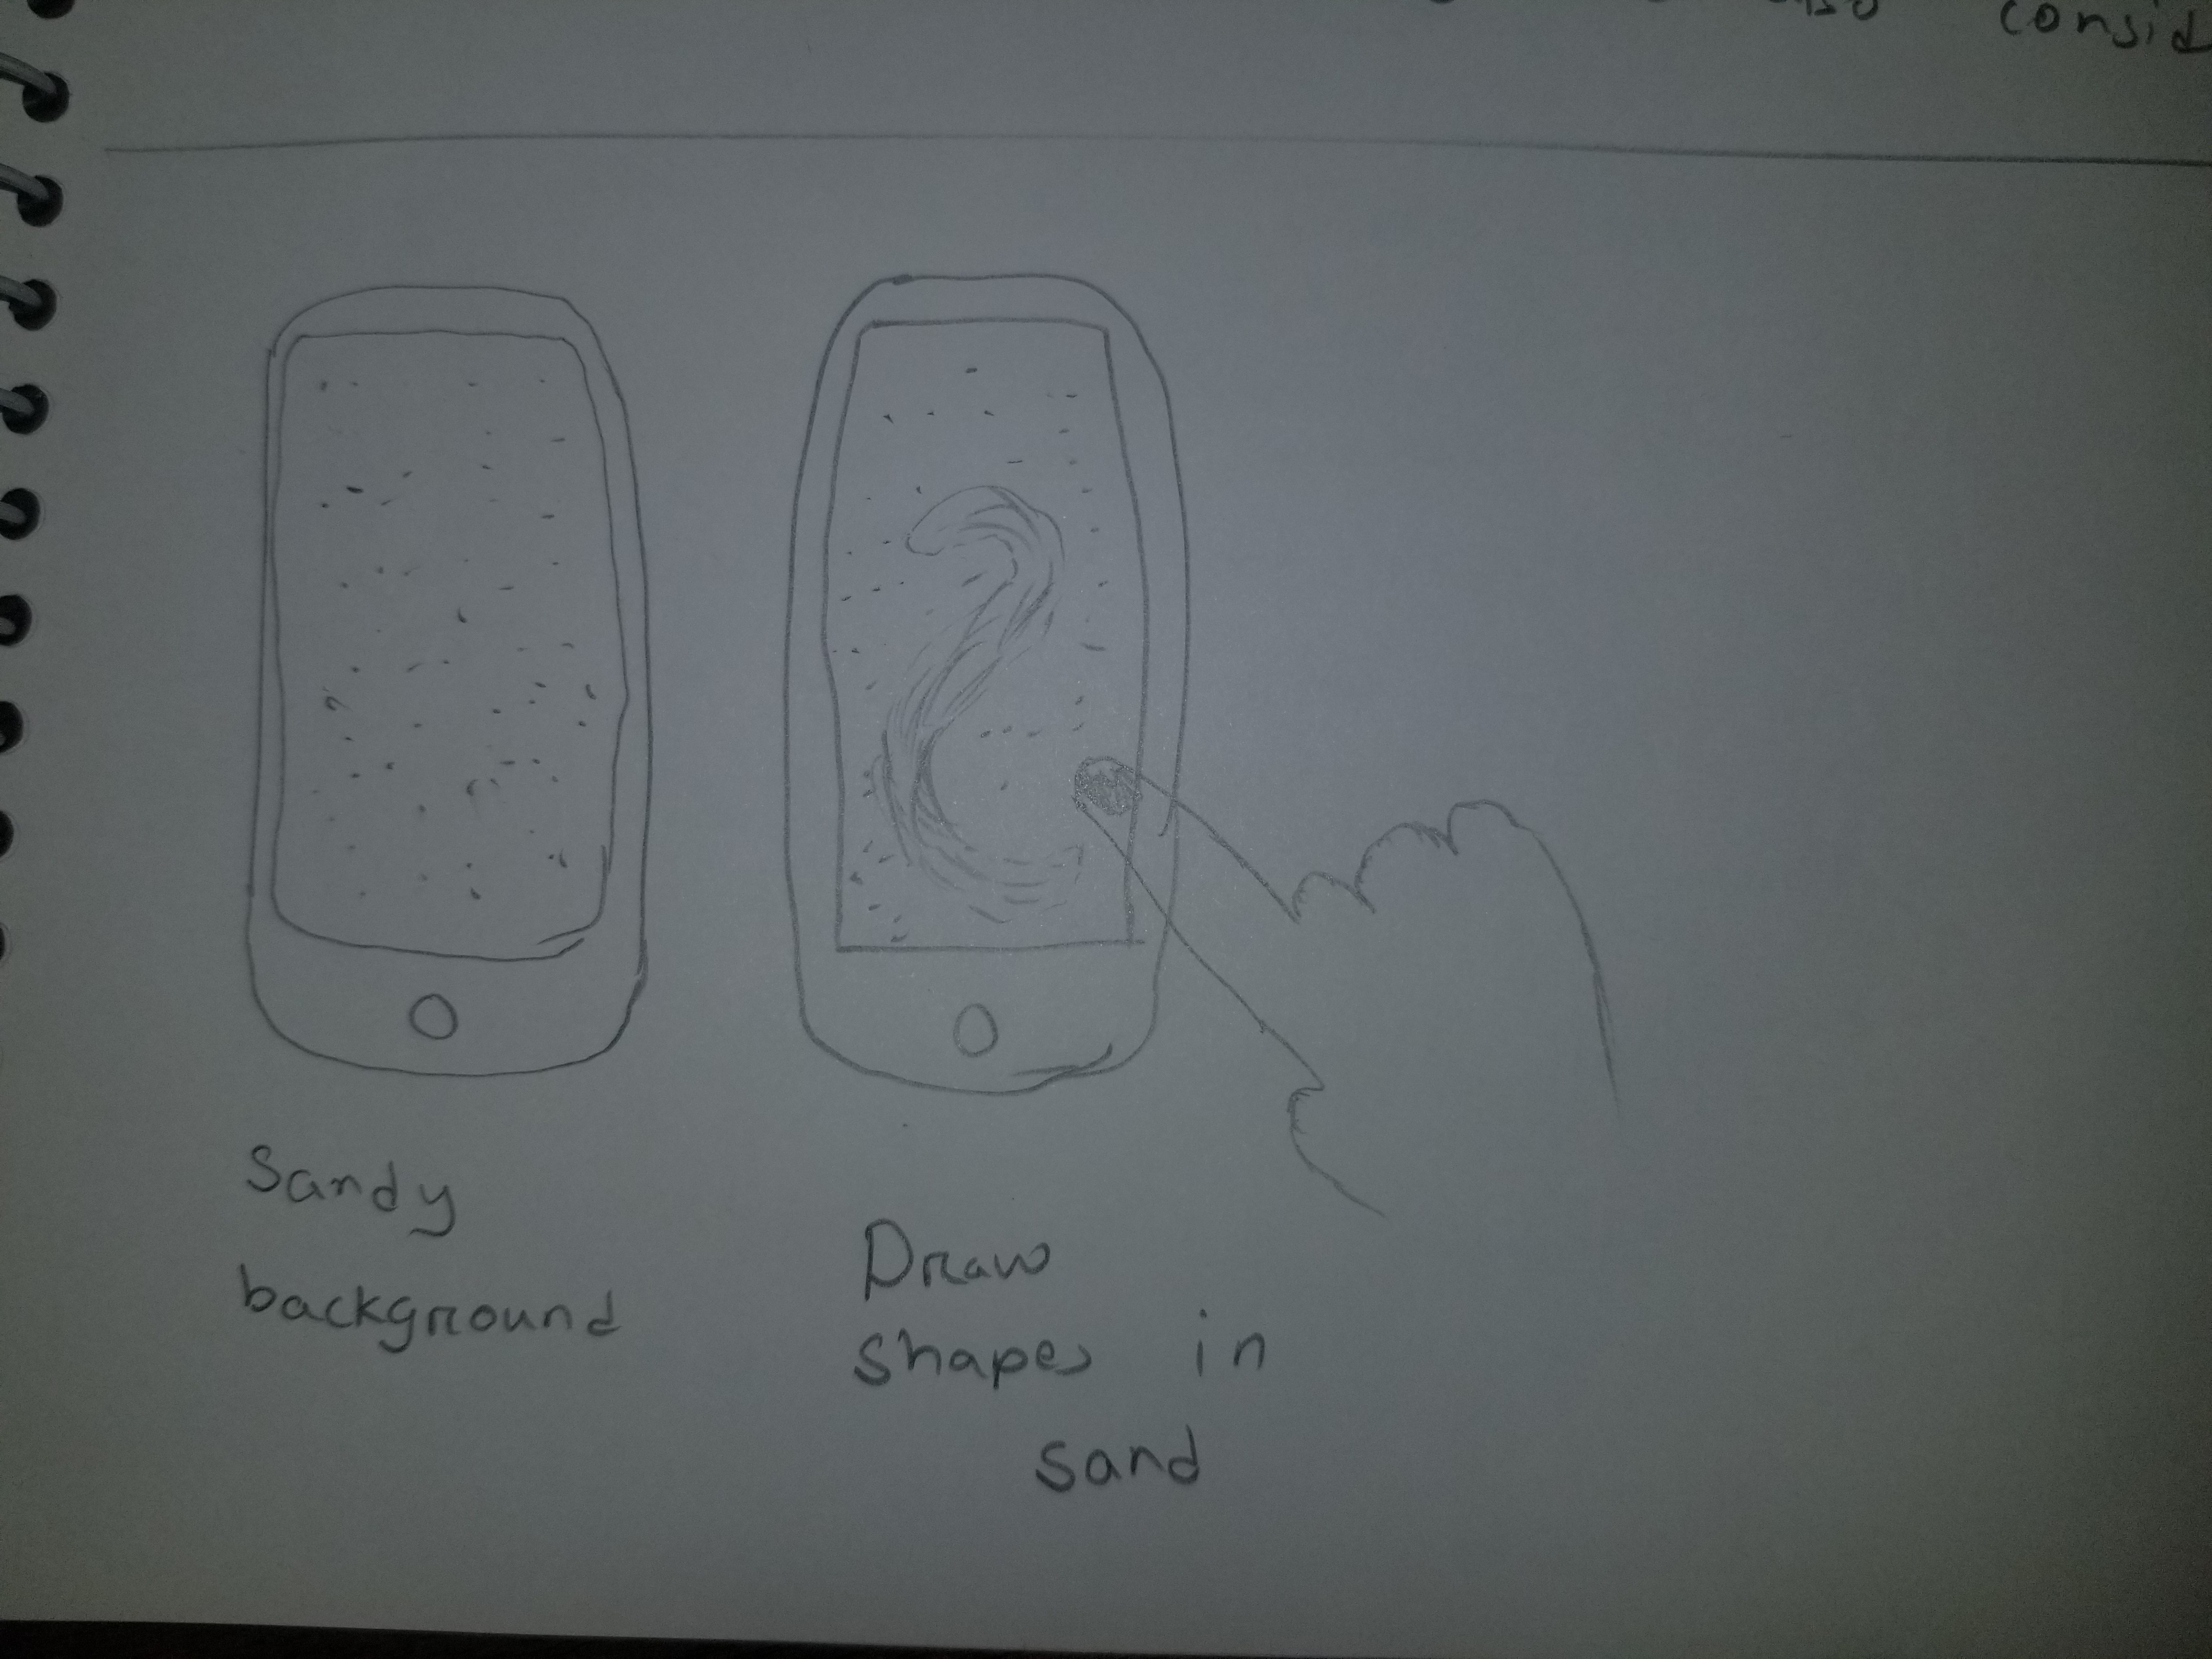 consid
Sandy
background
Draw
shapes in
sand